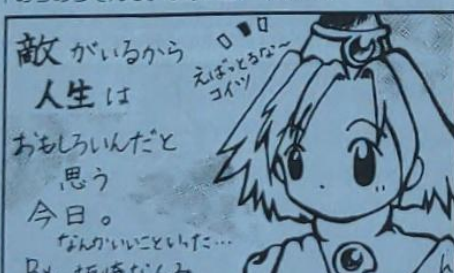 敵がいるから
人生は
おもしろいんだと
思う
今日。
なんかいいこといった…
えばっとるな〜
コイツ
By